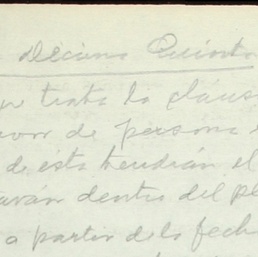 Decima Quinta
trata la cláus
de persona
de esta tendrán el
dentro del pl
a partir de la fech